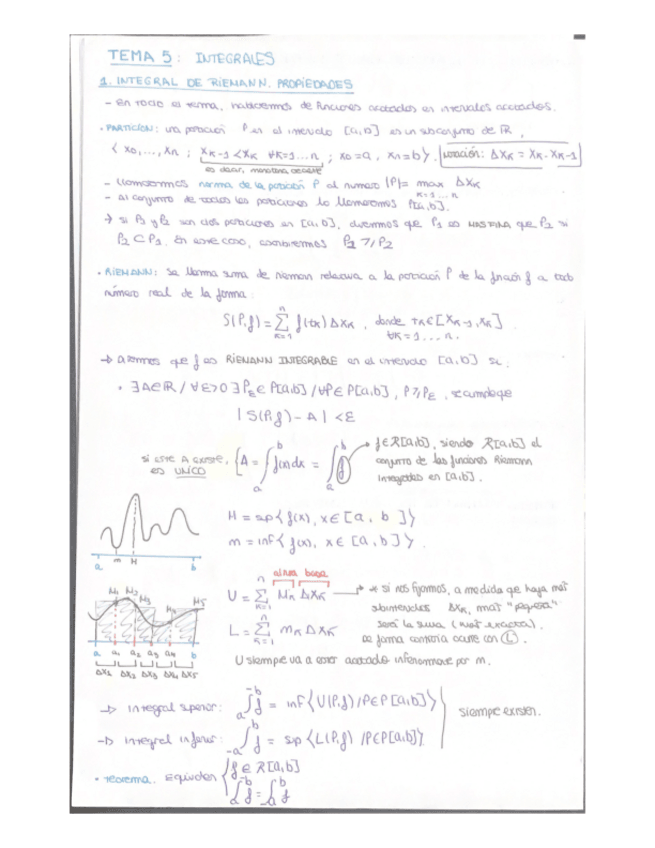 TEMA 5: INTEGRALES
1. INTEGRAL DE RIEMANN. PROPIEDADES
- En todo el tema, hablaremos de funciones acotadas en intervalos acotados.
· PARTICIÓN: una partición P en el intervalo [a,b] es un subconjunto de ℝ,
{ x0,..., xn ; xk-1 < xk ∀k=1...n ; x0 = a, xn = b }. Notación: Δxk = xk - xk-1
es decir, creciente
- llamaremos norma de la partición P al número |P| = max Δxk
k=1...n
- al conjunto de todas las particiones lo llamaremos P[a,b].
→ si P1 y P2 son dos particiones en [a,b], diremos que P1 es MÁS FINA que P2 si
P2 ⊂ P1. En este caso, escribiremos P1 ≥ P2
· RIEMANN: se llama suma de riemann relativa a la partición P de la función f a todo
número real de la forma:
S(P,f) = Σ f(tk) Δxk, donde tk ∈ [xk-1, xk]
n
k=1
∀k = 1 ... n.
→ diremos que f es RIEMANN INTEGRABLE en el intervalo [a,b] si:
· ∃A∈ℝ / ∀ε>0 ∃Pε∈P[a,b] / ∀P∈P[a,b], P≥Pε, se cumple que
| S(P,f) - A | < ε
si este A existe, es UNICO { A = ∫ab f(x)dx = ∫ab f
f∈R[a,b], siendo R[a,b] el
conjunto de las funciones Riemann
integrables en [a,b].
M = sup{ f(x), x∈[a,b] }
m = inf{ f(x), x∈[a,b] }.
a m M b
altura base
U = Σ Mk Δxk
n
k=1
→ * si nos fijamos, a medida que haya más
subintervalos Δxk, más "pequeña"
será la suma (más exacta).
L = Σ mk Δxk
n
k=1
De forma contraria ocurre con L.
U siempre va a estar acotado inferiormente por m.
M1 M2 M3 M4 M5
a a1 a2 a3 a4 b
Δx1 Δx2 Δx3 Δx4 Δx5
→ integral superior: ∫a-b f = inf{U(P,f) / P∈P[a,b]}
siempre existen.
→ integral inferior: ∫-ab f = sup{L(P,f) / P∈P[a,b]}
· Teorema. Equivalen { f∈R[a,b]
∫a-b f = ∫-ab f